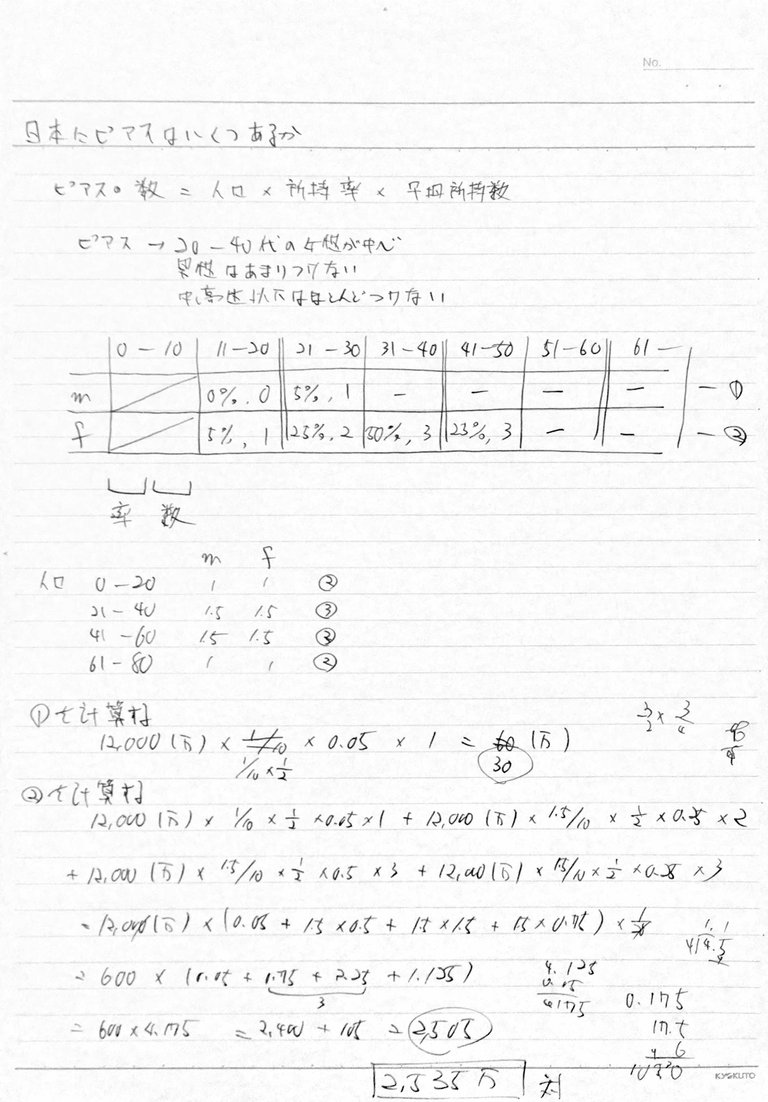 No.
日本にピアスはいくつあるか
ピアスの数 = 人口 × 所持率 × 平均所持数
ピアス → 20 - 40代の女性が中心
男性はあまりつけない
中高生以下はほとんどつけない
0 - 10 11 - 20 21 - 30 31 - 40 41 - 50 51 - 60 61 -
m 0%, 0 5%, 1 - - - - - ①
f 5%, 1 25%, 2 50%, 3 25%, 3 - - - ②
率 数
m f
人口 0 - 20 1 1 ②
21 - 40 1.5 1.5 ③
41 - 60 1.5 1.5 ③
61 - 80 1 1 ②
①を計算する
12,000 (万) × × 0.05 × 1 = 60 (万)
1/10 × 1/2 30
3/2 × 3/4
②を計算する
12,000 (万) × 1/10 × 1/2 × 0.05 × 1 + 12,000 (万) × 1.5/10 × 1/2 × 0.25 × 2
+ 12,000 (万) × 1.5/10 × 1/2 × 0.5 × 3 + 12,000 (万) × 1.5/10 × 1/2 × 0.25 × 3
= 12,000 (万) × (0.05 + 1.5 × 0.5 + 1.5 × 1.5 + 1.5 × 0.75) ×
= 600 × (0.05 + 0.75 + 2.25 + 1.125)
3
= 600 × 4.175 = 2,400 + 105 = 2,505
4.125
0.05
4.175
0.175
17.5
× 6
2,535万 対
KYOKUTO